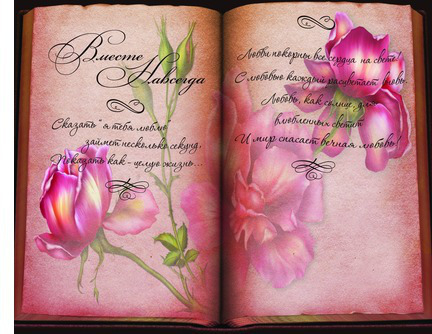 Вместе
Навсегда
Сказать "я тебя люблю"
займет несколько секунд,
Показать как - целую жизнь...
Любви покорны все сердца на свете!
С любовью каждый расцветает вновь.
Любовь, как солнце, для
влюбленных светит
И мир спасает вечная любовь!